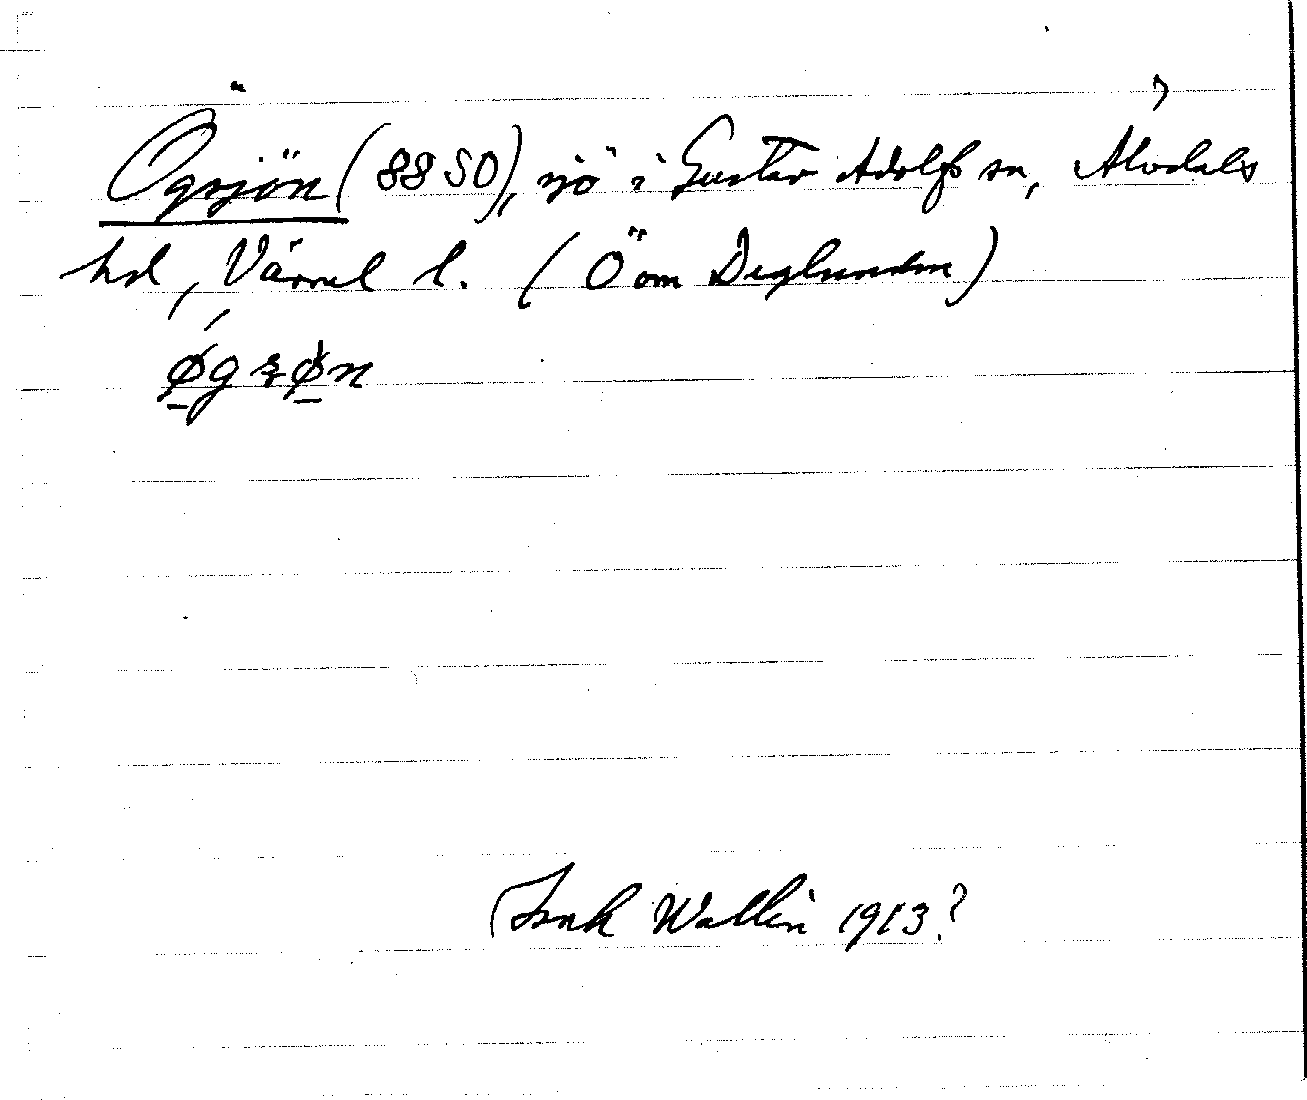 Ögsjön (8850), sjö i Gustav Adolfs sn, Älvdals
hd, Värml l. (Ö om Deglunden)
Isak Wallin 1913?